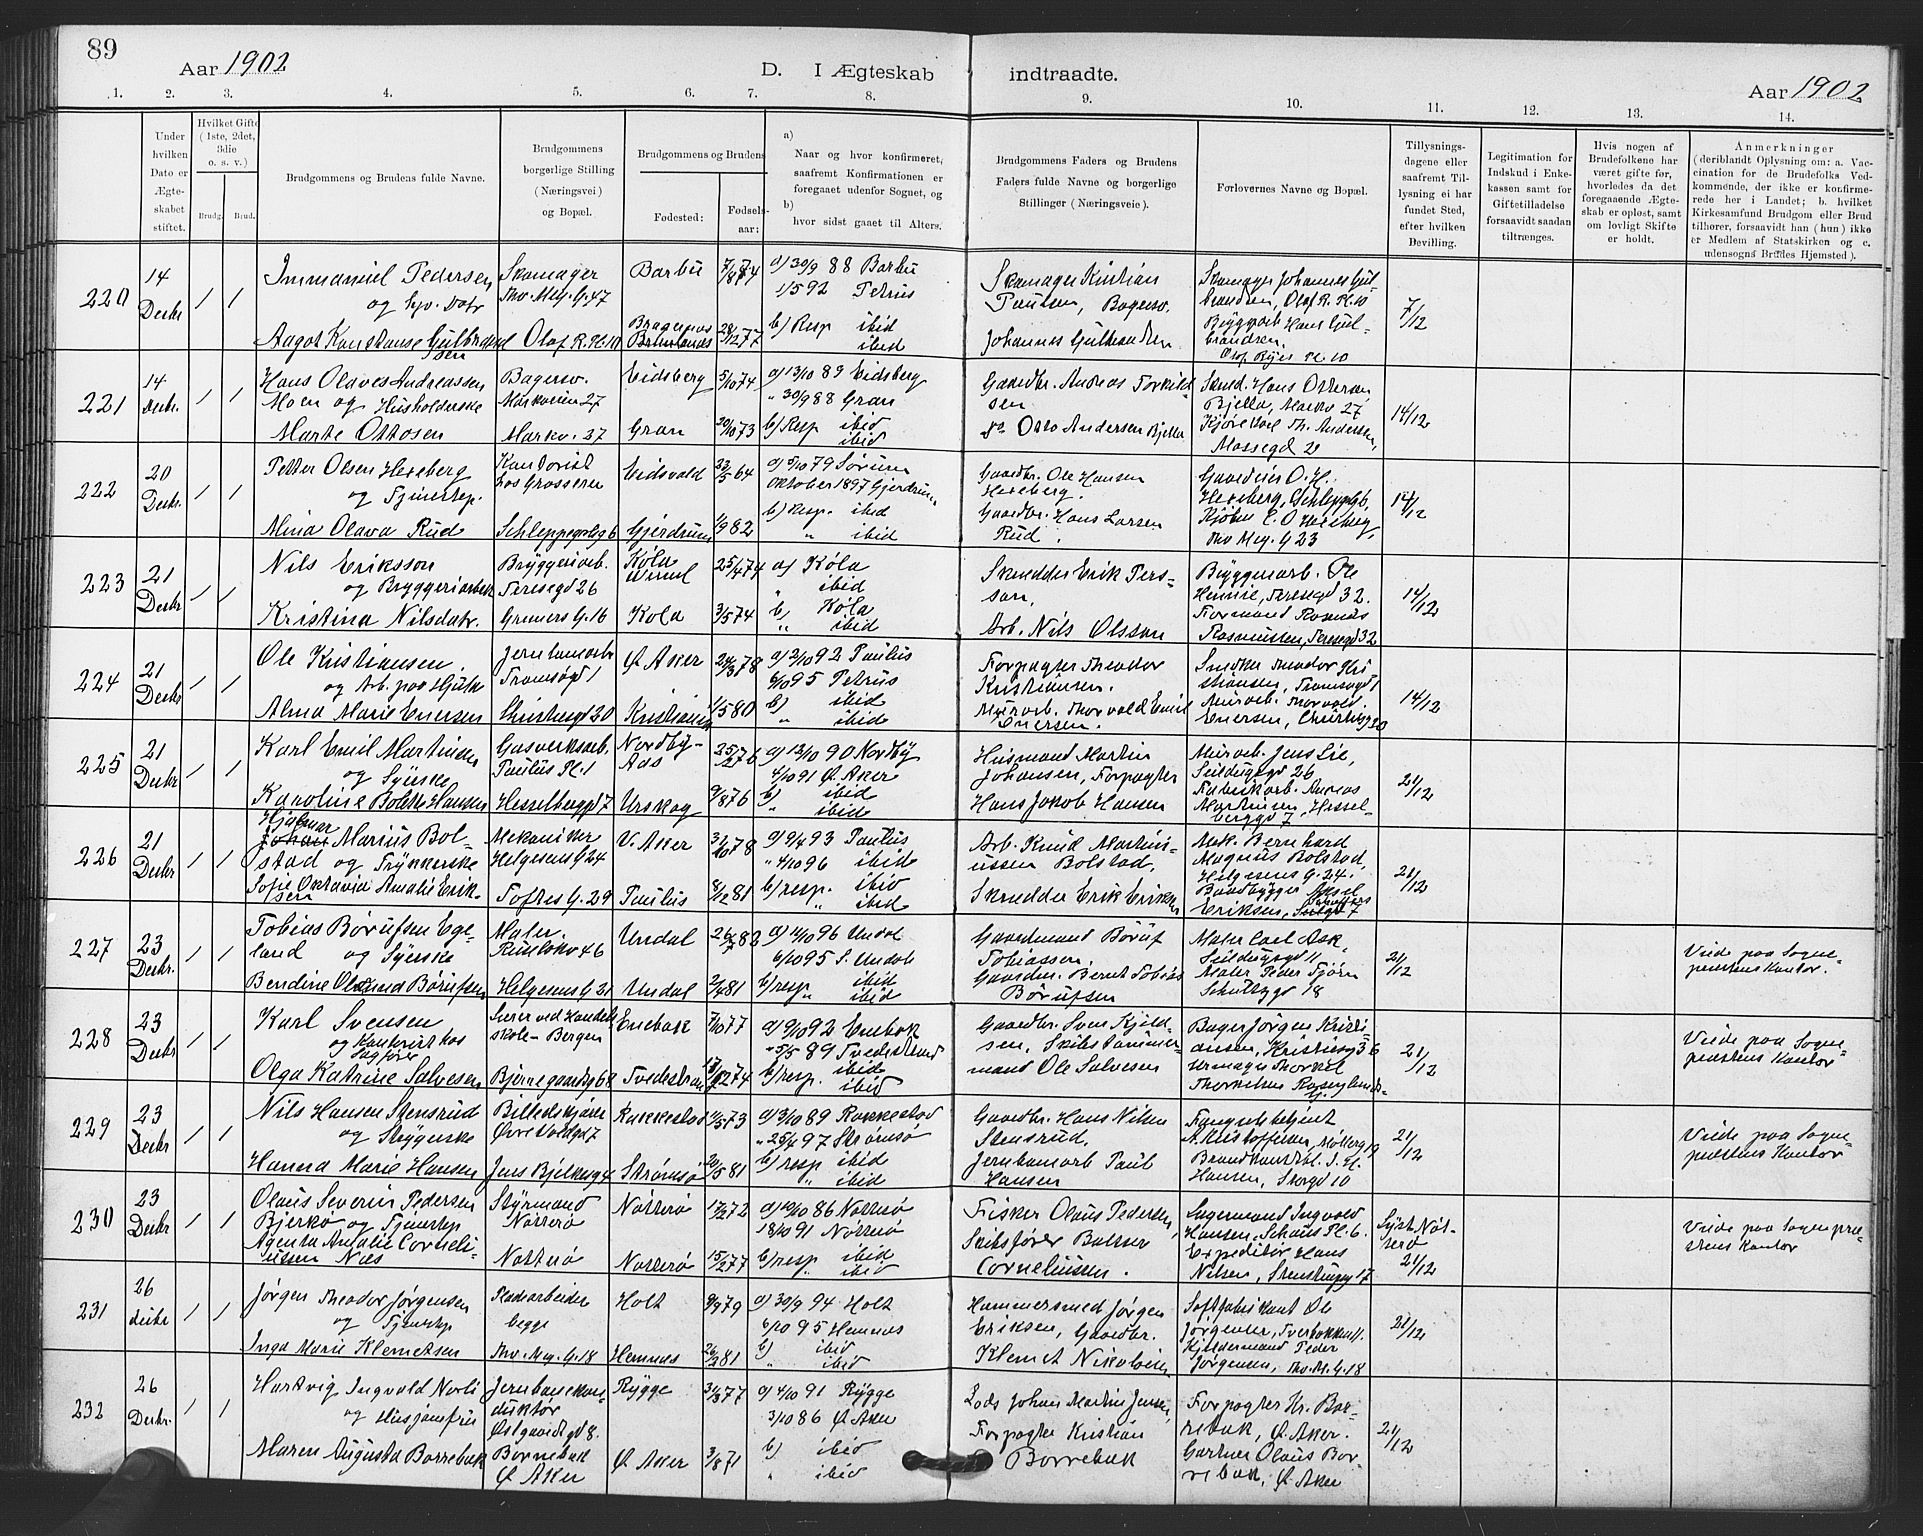 89
Aar 1902
D. I Ægteskab indtraadte.
Aar 1902
1. 2. 3. 4. 5. 6. 7. 8. 9. 10. 11. 12. 13. 14.
Under hvilken Dato er Ægteskabet stiftet.
Hvilket Gifte (1ste, 2det, 3die o. s. v.)
Brudg. Brud.
Brudgommens og Brudens fulde Navne.
Brudgommens borgerlige Stilling (Næringsvei) og Bopæl.
Brudgommens og Brudens
Fødested: Fødselsaar:
a) Naar og hvor konfirmeret, saafremt Konfirmationen er foregaaet udenfor Sognet, og
b) hvor sidst gaaet til Alters.
Brudgommens Faders og Brudens Faders fulde Navne og borgerlige Stillinger (Næringsveie).
Forlovernes Navne og Bopæl.
Tillysningsdagene eller saafremt Tillysning ei har fundet Sted, efter hvilken Bevilling.
Legitimation for Indskud i Enkekassen samt for Giftetilladelse forsaavidt saadan tiltrænges.
Hvis nogen af Brudefolkene har været gifte før, hvorledes da det foregaaende Ægteskab er opløst, samt om lovligt Skifte er holdt.
Anmerkninger (deriblandt Oplysning om: a. Vaccination for de Brudefolks Vedkommende, der ikke er konfirmerede her i Landet; b. hvilket Kirkesamfund Brudgom eller Brud tilhører, forsaavidt han (hun) ikke er Medlem af Statskirken og c. udensogns Brudes Hjemsted).
220
14 Decbr
1 1
Immanuel Pedersen
Aagot Konstanse Gulbrandsen
Skomager
Thv. Mey. G. 47
Olaf R. Pl. 10
Barbu
a) 30/9 88 Barbu
1/5 92 Petrus
b) Resp ibid
ibid
Skomager Kristian
Johannes Gulbrandsen
Skomager Johannes Gulbrandsen, Olaf R. Pl. 10
7/12
221
14 Decbr.
1 1
Hans Olaves Andreassen
Moen og Husholderske
Marte Ottosen
Markveien 27
Markv. 27
Eidsberg 5/10 74
Gran 20/10 73
a) 13/10 89 Eidsberg
" 30/9 88 Gran
b) Resp ibid
ibid
Gaardbr. Andreas Torkildsen
do Otto Andersen Bjella
Smed. Hans Ottesen
Bjella, Markv 27
14/12
222
20 Decbr.
1 1
Petter Olsen Hexeberg
og Tjenestep.
Mina Olava Rud
Kontorist
hos Grosserer
Schleppegrelsg 6
Eidsvold 23/5 64
Gjerdrum 1/9 82
a) 5/10 79 Sørum
Oktober 1897 Gjerdrum
b) Resp. ibid
" ibid
Gaardbr. Ole Hansen
Hexeberg.
Gaardbr. Hans Larsen
Rud.
Gaardeier O. H.
Hexeberg, Schleppg 6,
Kjøbm. E. O. Hexeberg,
Thv Mey. G 23
14/12
223
21 Decbr
1 1
Nils Eriksson
og Bryggeriarbeid
Kristina Nilsdatr.
Bryggeriarb.
Teresegd 26
Gruners G. 16
Köla
Köla 3/5 74
25/4 74
a) Köla
" ibid
b) Köla
" ibid
Skredder Erik Persson,
Arb. Nils Olsson
Bryggeriarb. Ole
Teresegd 32.
Formand Rasmus
Rasmussen, Teresegd 32
14/12
224
21 Decbr
1 1
Ole Kristiansen.
og Arb. paa Hjulsk
Alma Marie Enersen
Jernbanearb
Tromsøgd 1
Christiesgd 20
Ø. Aker 24/3 78
Kristiania 1/5 80
a) 2/10 92 Paulus
6/10 95 Petrus
b) ibid
" ibid
Forpagter Theodor
Kristiansen.
Murarb. Thorvald Emil
Enersen.
Smeker Theodor Kristiansen, Tromsøgd 1
Murarb. Thorvald
Enersen, Christiesg 20
14/12
225
21 Decbr
1 1
Karl Emil Martinsen
og Syerske
Karoline Bolette Hansen
Gasverksarb.
Paulus Pl. 1
Hesselbergsgd 7
Nordby - Aas 25/2 76
Urskog 9/8 76
a) 13/10 90 Nordby
4/10 91 Ø. Aker
b) ibid
" ibid
Husmand Martin
Johansen, Forpagter
Hans Jakob Hansen
Murarb. Jens Lie,
Seildugsgd 26
Fabrikarb. Andreas
Martinsen, Hesselbergsgd 7
21/12
226
21 Decbr
1 1
Hjalmar
Johan Marius Bolstad og Trykkerske
Sofie Oktavia Amalie Eriksen
Mekaniker
Helgesens G. 24
Toftes G. 29
V. Aker 31/10 78
Paulus 8/12 81
a) 9/4 93 Paulus
" 4/10 96 ibid
b) resp. ibid
" ibid
Arb. Knud Martiniussen Bolstad,
Skredder Erik Eriksen
Mek. Bernhard
Magnus Bolstad,
Helgesens G. 24.
21/12
227
23 Decbr.
1 1
Tobias Børufsen Egeland og Syerske
Bendine Børufsen
Maler.
Helgesens G. 21
Undal 26/7 82
Undal 2/4 81
a) 4/10 96 Undal
6/10 95 S. Undal
b) resp ibid
" ibid
Gaardmand Børuf
Tobiassen,
Gaardm. Bernt Tobias
Børufsen
Maler Carl Ask,
Seildugsgd 11
Maler Peder Tjørn
Schultzgd 18
21/12
Viede paa Sogneprestens Kontor.
228
23 Decbr
1 1
Karl Svensen
og Kontorist hos
Sagfører
Olga Katrine Salvesen
Lærer ved Handelsskole - Bergen
Enebak 7/10 77
Tvedestrand
a) 9/10 92 Enebak
" 5/5 89 Tvedestrand
b) resp. ibid
" ibid
Gaardbr. Sven Kjeldsen, Skibstømmermand Ole Salvesen
Bager Jørgen Kristiansen,
Urmager Thorkel
21/12
Viede paa Sogneprestens Kontor
229
23 Decbr
1 1
Nils Hansen Stensrud
og Strygerske
Hanna Marie Hansen
Billedskjærer
Øvre Voldgd 7
Jens Bjelkesg 4
Rakkestad 11/5 73
Strømsø 20/5 81
a) 3/10 89 Rakkestad
" 25/4 97 Strømsø
b) resp ibid
" ibid
Gaardbr. Hans Nilsen
Stensrud,
Jernbanearb Paul
Hansen
Fængselsbetjent
A. Kristoffersen, Møllerg 19
Hansen, Storgd 10
21/12
Viede paa Sogneprestens Kontor
230
23 Decbr
1 1
Olaus Severin Pedersen
Bjerkø og Tjenestep
Agenta Amalie Corneliussen Næs
Styrmand
Nøtterø
Nøtterø
Nøtterø 17/2 72
Nøtterø 15/2 77
a) 10/10 86 Nøtterø
18/10 91 Nøtterø
b) resp ibid
" ibid
Fisker Olaus Pedersen
Skibsfører
Corneliussen.
Lagermand Ingvald
Hansen, Schous Pl. 6.
Expeditør Hans
Nilsen, Stenstrupg 17
Lyst Nøtterø
21/12
Viede paa Sogneprestens Kontor
231
26 Decbr
1 1
Jørgen Theodor Jørgensen
og Tjenestep
Inga Marie Klemetsen
Pladearbeider
begge
Thv. Mey. G. 18
Holt 9/9 79
Hemnes 26/3 81
a) 30/9 94 Holt
6/10 95 Hemnes
b) ibid
" ibid
Hammersmed Jørgen
Eriksen, Gaardbr.
Klemet Nikolaisen
Kjeldermand Peder
Jørgensen, Thv. M. G. 18
21/12
232
26 Decbr.
1 1
Hartvig Ingvald Norli
og Husjomfru
Maren Augusta Borrebæk
Jernbanekonduktør
Borrebæk
Ø Aker
Rygge 31/3 77
Ø. Aker 3/8 71
a) 4/10 91 Rygge
3/10 86 Ø Aker
b) ibid
" ibid
Lods Johan Martin Jensen,
Forpagter Kristian
Borrebæk
Forpagter Kr. Borrebæk, Ø. Aker.
Gartner Olaus Borrebæk, Ø. Aker
21/12